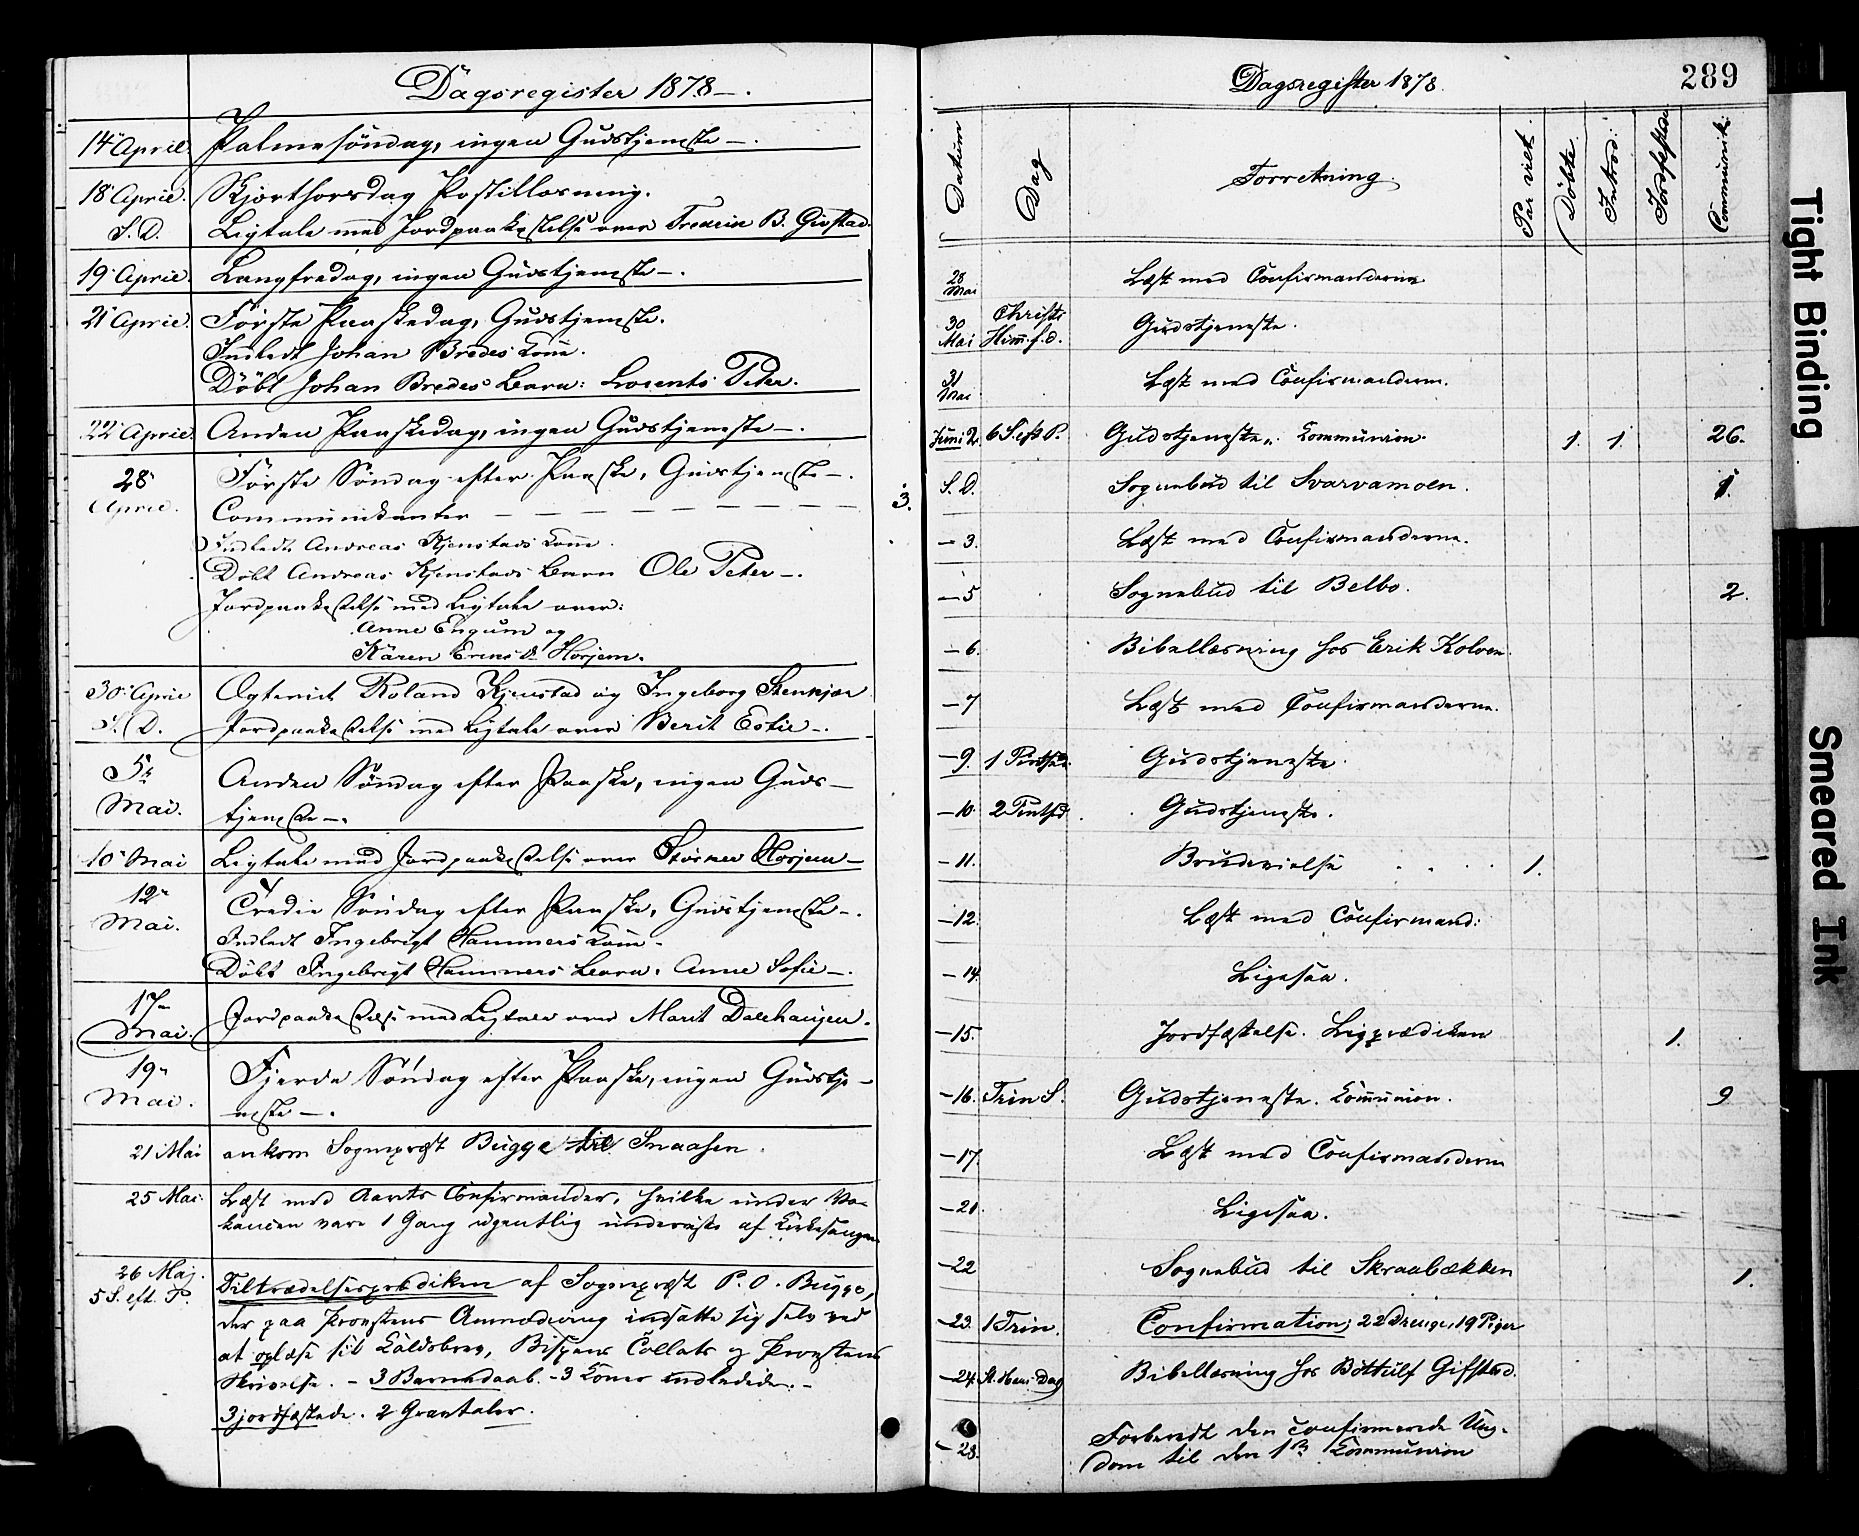 Dagsregister 1878 –.
14 April. Palmesöndag, ingen Gudstjeneste –.
18 April. Skjærthorsdag Postillæsning.
S. D. Ligtale med Jordpaakastelse over Fredrik B. Gifstad.
19 April. Langfredag, ingen Gudstjeneste –.
21 April. Første Paaskedag, Gudstjeneste.
Indledt Johan Bredes Kone.
Döbt Johan Bredes Barn: Lorents Peter.
22 April. Anden Paaskedag, ingen Gudstjeneste –.
28 Første Söndag efter Paaske, Gudstjeneste –.
April. Communikanter – – – – – – – – 3.
Indledt Andreas Kjenstads Kone.
Döbt Andreas Kjenstads Barn Ole Peter –.
Jordpaakastelse med Ligtale over:
Anne Engum og
Karen Horjem.
30 April Ægteviet Roland Kjenstad og Ingeborg Stenkjær
S. D. Jordpaakastelse med Ligtale over Berit –.
5 Anden Söndag efter Paaske, ingen Guds–
Mai. tjeneste –.
10 Mai Ligtale med Jordpaakastelse over Horjem –
12 Tredie Söndag efter Paaske, Gudstjeneste –.
Mai. Indledt Ingebrigt Hammers Kone –
Döbt Ingebrigt Hammers Barn: Anne Sofie –.
17 Jordpaakastelse med Ligtale over Marit
Mai.
19 Fjerde Söndag efter Paaske, ingen Gudstje–
Mai. neste –.
21 Mai ankom Sogneprest Bugge til Snaasen.
25 Mai Læst med Aarets Confirmander, hvilke under Va–
kancen vare 1 Gang ugentlig underviste af Kirkesangeren
26 Maj. Tiltrædelsesprædiken af Sogneprest P. O. Bugge,
5 S. eft. P. der paa Provstens Anmodning indsatte sig selv ved
at oplæse sit Kaldsbrev, Bispens Collats og Provstens
Skrivelse. – 3 Barnedaab. – 3 Koner indledede. –
3 jordfæstede. 2 Gravtaler.
Dagsregister 1878. 289
Datum Dag Forretning. Par viet. Döbte. Introd: Jordfæstelse Communik:
28 Mai Læst med Confirmanderne
30 Mai Christi Himm. f. d. Gudstjeneste.
31 Mai Læst med Confirmanderne.
Juni 2. 6 S. eft P. Gudstjeneste. Kommunion. 1. 1. 26.
S. D. Sognebud til Svarvamoen. 1.
– 3. Læst med Confirmanderne.
– 5 Sognebud til Belbo. 2.
– 6. Bibellæsning hos Erik Kolven.
– 7 Læst med Confirmanderne.
– 9. 1 Pintsed. Gudstjeneste.
– 10. 2 Pintsd. Gudstjeneste.
– 11. Brudevielse . . . 1.
– 12. Læst med Confirmand:
– 14. Ligesaa.
– 15. Jordfæstelse. Ligprædiken 1.
– 16. Trin S. Gudstjeneste. Kommunion. 9
– 17. Læst med Confirmanderne
– 21. Ligesaa.
– 22 Sognebud til Skraabækken 1.
– 23. 1 Trin. Confirmation; 22 Drenge, 19 Piger
– 24. St. Hans Dag Bibellæsning hos Bottolf Gifstad.
– 28. Forberedt den confirmerede Ung–
dom til den 1ste Kommunion
Tight Binding
Smeared Ink